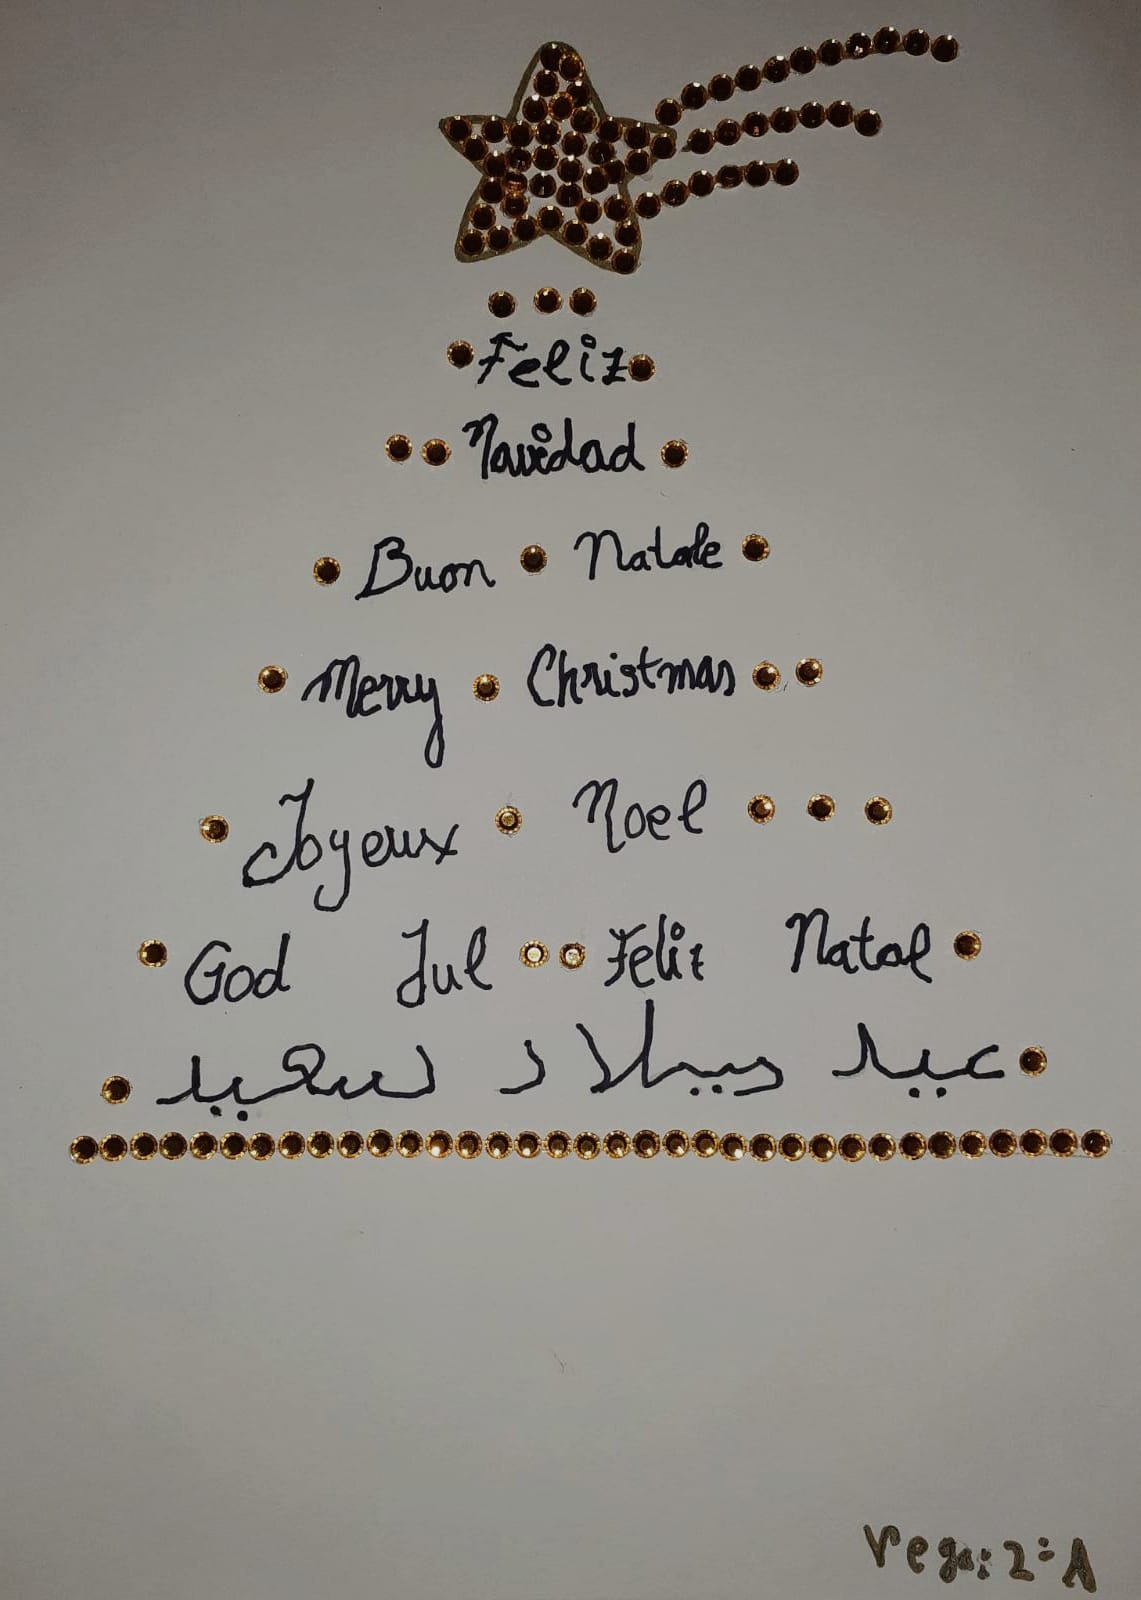 Feliz
Navidad
Buon Natale
Merry Christmas
Joyeux Noel
God Jul Feliz Natal
عيد ميلاد سعيد
Vega: 2º A